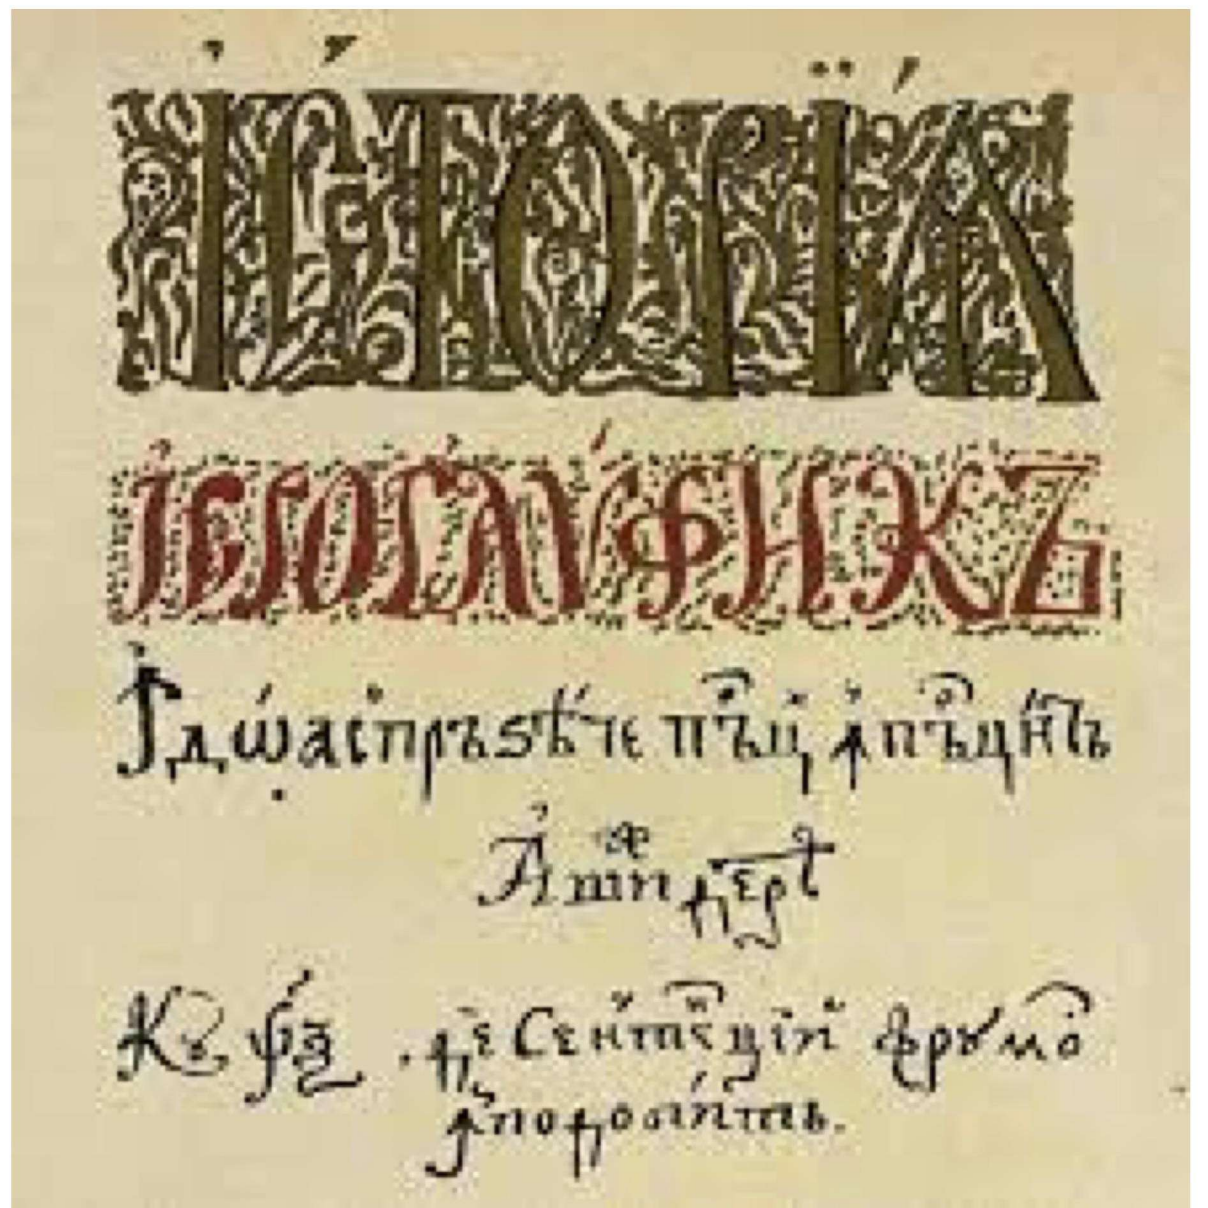 І҆СТОРЇѦ
ІЕРОГЛѴФИКЪ
Ꙟ дѡаспръѕѣче пърцй ꙟпърцитъ
Ашиждерѣ
Кꙋ ѱѯ . де Сентенций фрꙋмос
ꙟподобитъ.